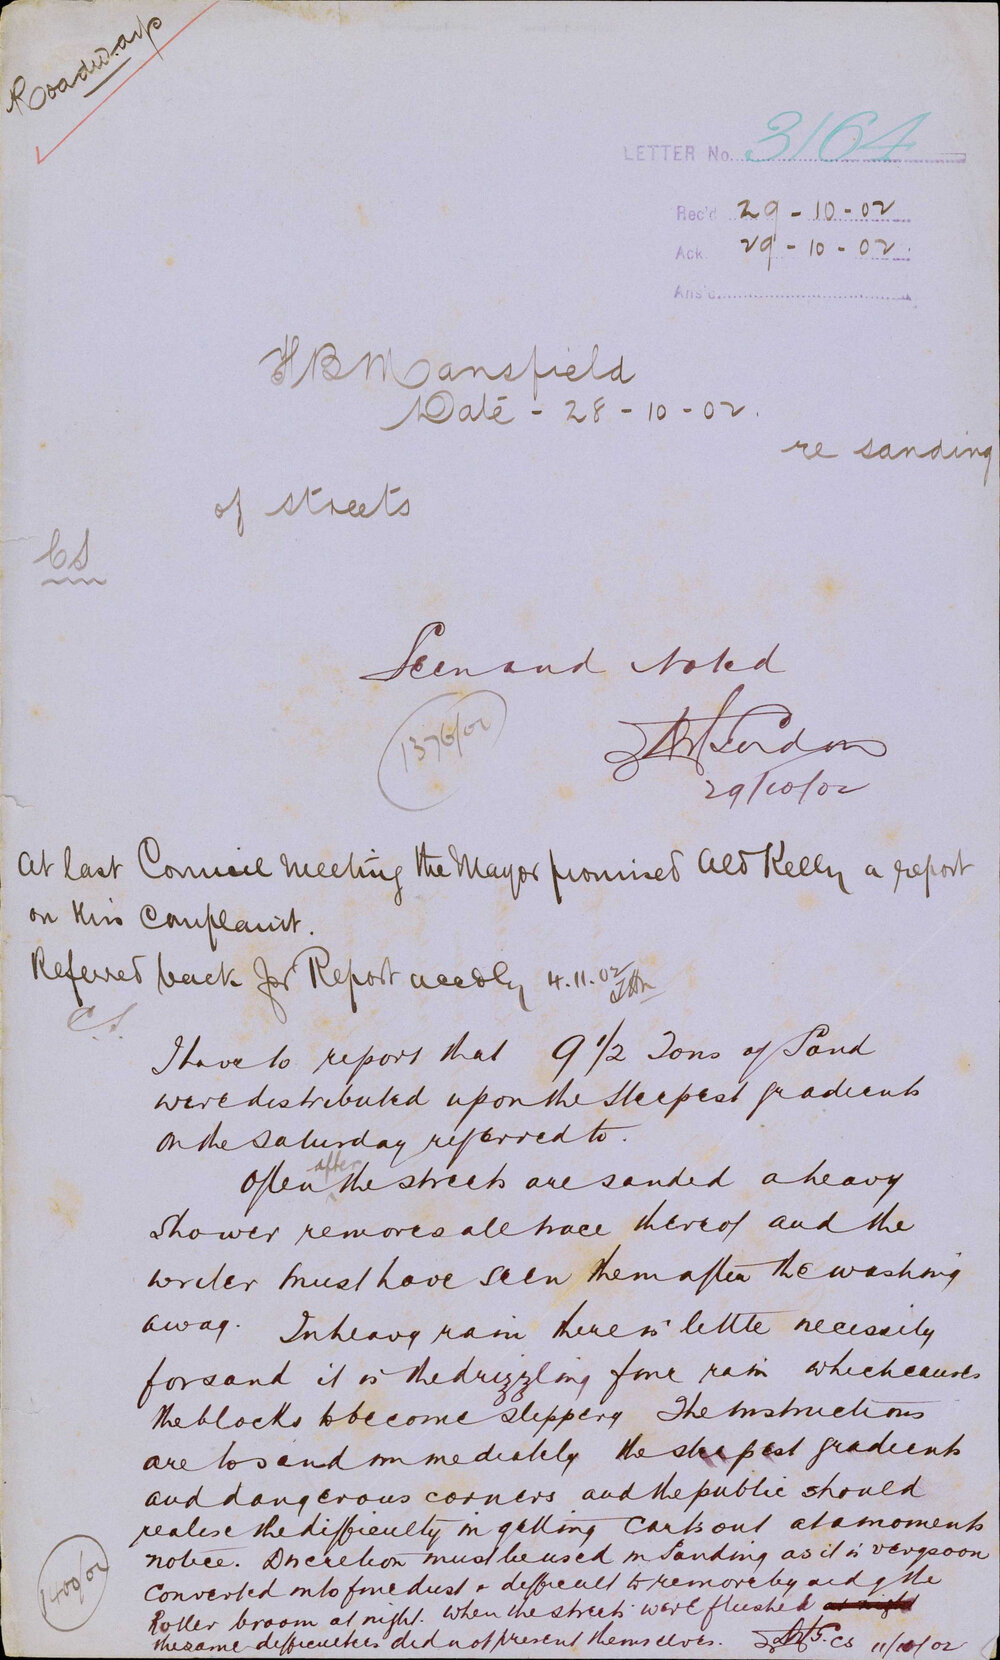 Roadways
LETTER No. 3164
Rec'd 29-10-02
Ack. 29-10-02
Ans'd
H B Mansfield
Date - 28-10-02.
re sanding
of streets
CS
Seen and Noted
1376/02
29/10/02
At last Council Meeting the Mayor promised Ald Kelly a report
on this complaint.
Referred back for Report accdly 4.11.02
C.S.
I have to report that 9 1/2 Tons of Sand
were distributed upon the steepest gradients
on the Saturday referred to.
after
Often the streets are sanded a heavy
shower removes all trace thereof and the
writer must have seen them after the washing
away. In heavy rain there is little necessity
for sand it is the drizzling fine rain which causes
the blocks to become slippery The Instructions
are to sand immediately the steepest gradients
and dangerous corners and the public should
realise the difficulty in getting carts out at a moments
notice. Discretion must be used in Sanding as it is very soon
converted into fine dust & difficult to remove by aid of the
Roller broom at night. When the streets were flushed at night
the same difficulties did not present themselves. CS 11/10/02
1400/02